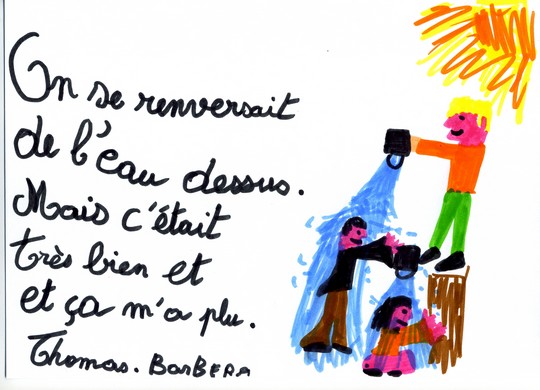 On se renversait
de l'eau dessus.
Mais c'était
très bien et
et ça m'a plu.
Thomas. BarBERA